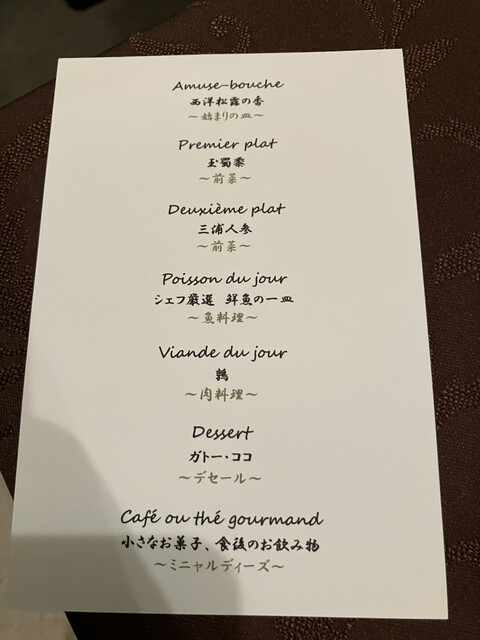 Amuse-bouche
西洋松露の香
～始まりの皿～
Premier plat
玉蜀黍
～前菜～
Deuxième plat
三浦人参
～前菜～
Poisson du jour
シェフ厳選 鮮魚の一皿
～魚料理～
Viande du jour
鶉
～肉料理～
Dessert
ガトー・ココ
～デセール～
Café ou thé gourmand
小さなお菓子、食後のお飲み物
～ミニャルディーズ～